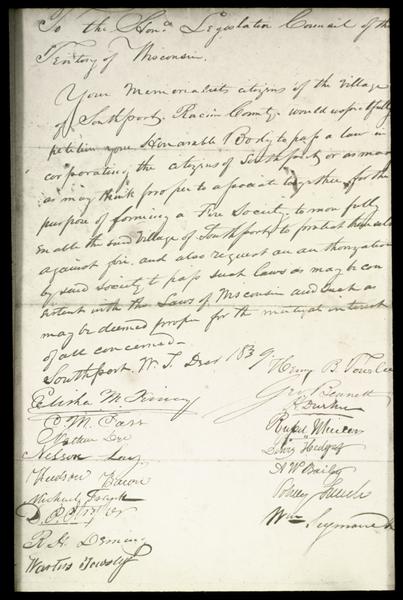 To the Hon. Legislative Council of the
Teritory of Wisconsin.
Your Memorialists citizens of the village
of Southport, Racine County would respectfully
petition your Honorable Body to pass a law in
corporating the citizens of Southport or as many
as may think proper to associate together for the
purpose of forming a Fire Society to more fully
enable the said Village of Southport to protect themselves
against fire, and also request an authorization
by said society to pass such laws as may be con
sistent with the Laws of Wisconsin and such as
may be deemed proper for the mutual interest
of all concerned.
Southport. W. T. Decr 1839.
Henry B. Towslee
Elisha M.
Geo. Bennett
Durkee
Nathan Dye
Rufus
Nelson
Hudson Bacon
A W Bailey
Michael Frank
Wm Seymour
R. H. Deming